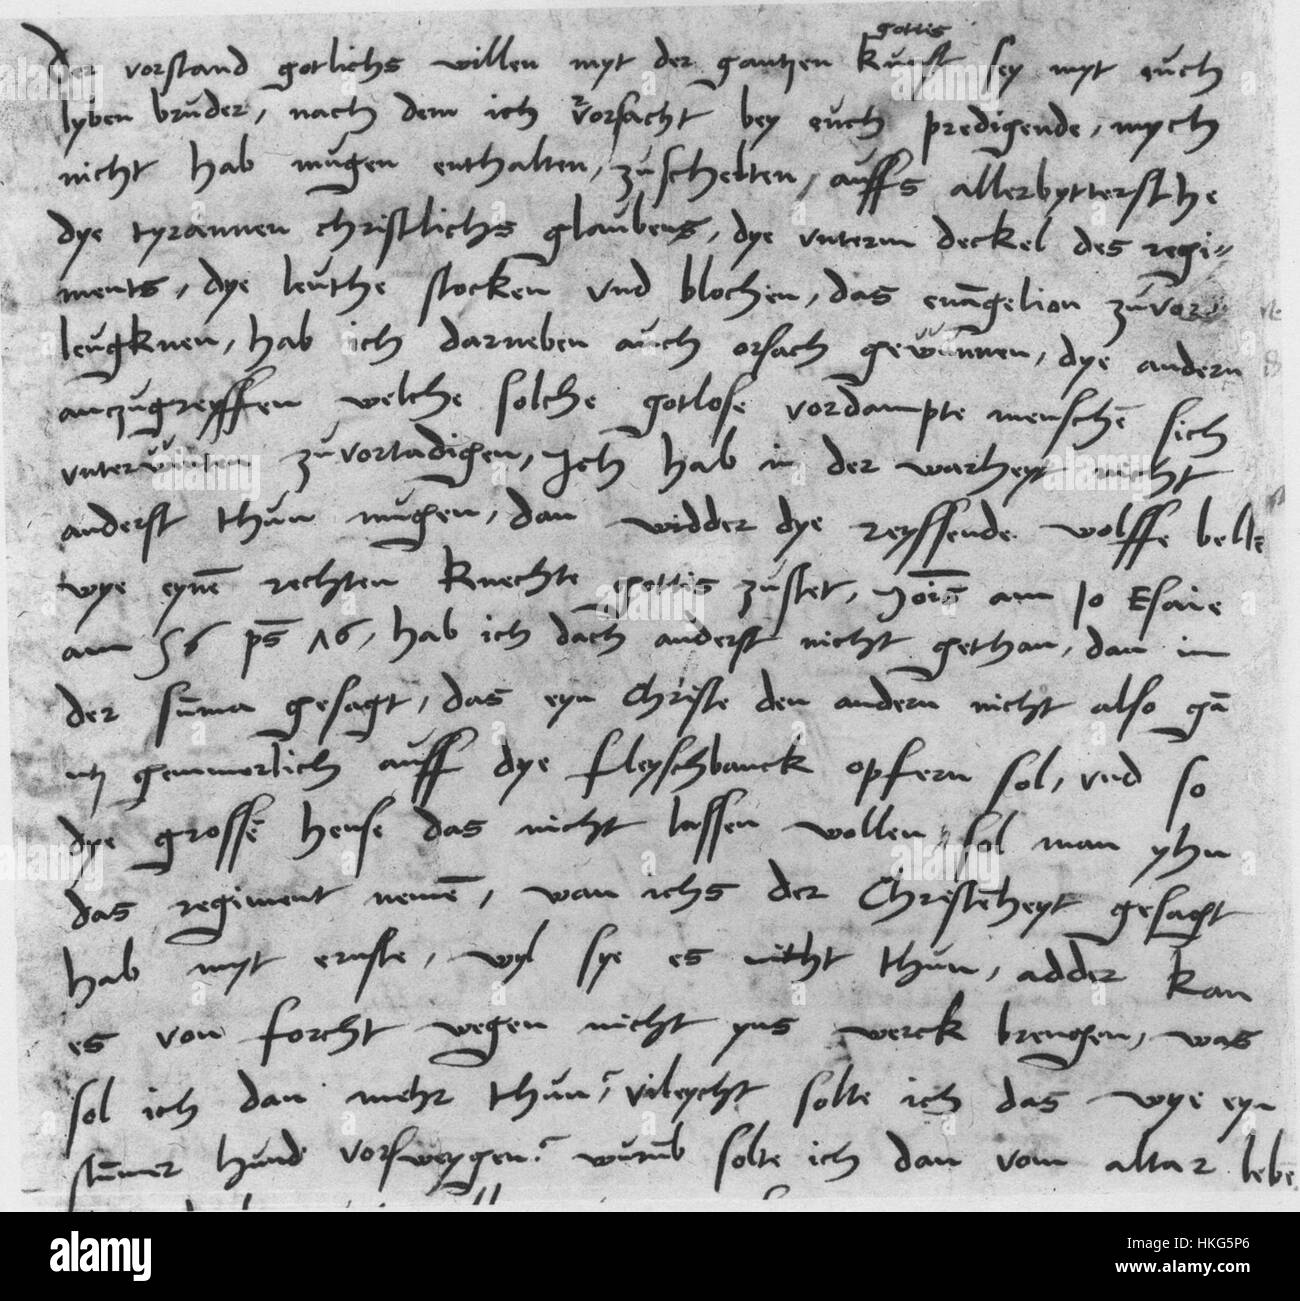 gottis
Der vorstand gotlichs willen myt der gantzen kunst sey myt euch
lyben bruder, nach dem ich vorsacht bey euch predigende, mych
nicht hab mugen enthalten, zu schelten, auffs allerbytterstche
dye tyrannen christlichs glaubens, dye unterm deckel des regi-
ments, dye leuthe stocken und blochen, das euāgelion zuvor
leugknen, hab ich darneben auch orsach gewunnen, dye andern
anzugreyffen welche solche gotlose vordampte menschē sich
unterwinten zu vortadigen, Ich hab in der warheyt nicht
anderst thun mugen, dan widder dye reyssende wolffe belle
wye eynē rechten knechte gottis zustet, Jois am 10 Esaie
am 56 ps 76, hab ich dach anderst nicht gethan, dan im
der sūma gesagt, das eyn Christe den andern nicht also gā
ntz gemmerlich auff dye fleyschbanck opfern sol, und so
dye grossē hense das nicht lassen wollen, sol man yhn
das regiment nemē, wan ichs der Christēheyt gesagt
hab myt ernste, wyl sye es nicht thun, adder kan
es von forcht wegen nicht yns werck brengen, was
sol ich dan mehr thun? vileycht solte ich das wye eyn
stūmer hund vorsweygen? wurūb solte ich dan vom altar lebē
alamy
Image ID: HKG5P6
www.alamy.com